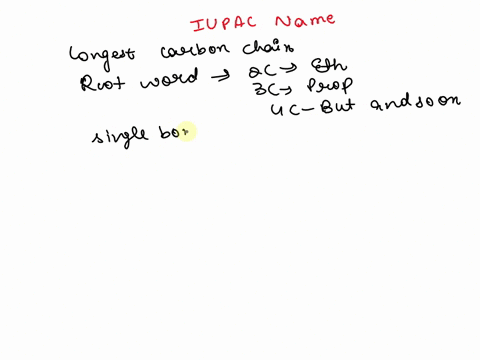 IUPAC Name
Longest carbon chain
Root word → 2C → Eth
3C → Prop
4C - But and so on
single bo